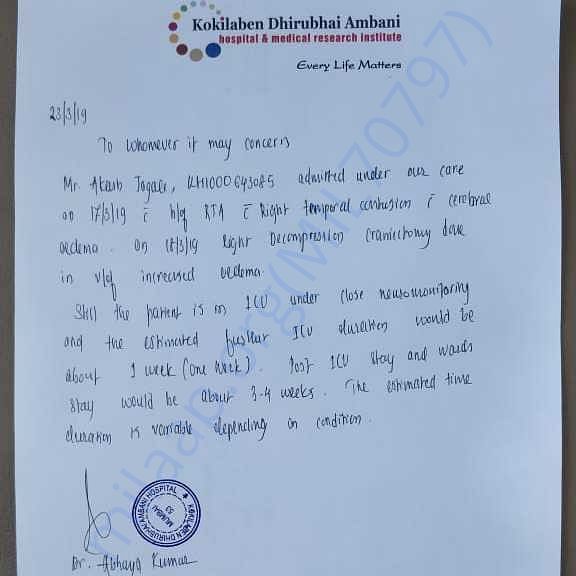 Kokilaben Dhirubhai Ambani
hospital & medical research institute
Every Life Matters
23/3/19
To whomever it may concern
Mr. Akash Jogale, KH1000643085 admitted under our care
on 17/3/19 c̄ h/o RTA c̄ Right temporal contusion c̄ cerebral
oedema. On 18/3/19 Right Decompression craniectomy done
in v/o increased oedema.
Still the patient is in ICU under close neuromonitoring
and the estimated further ICU duration would be
about 1 week (one week) Post ICU stay and wards
stay would be about 3-4 weeks. The estimated time
duration is variable depending on condition.
KOKILABEN DHIRUBHAI AMBANI HOSPITAL
MUMBAI
53
Dr. Abhaya Kumar
milaap.org(MIL70797)